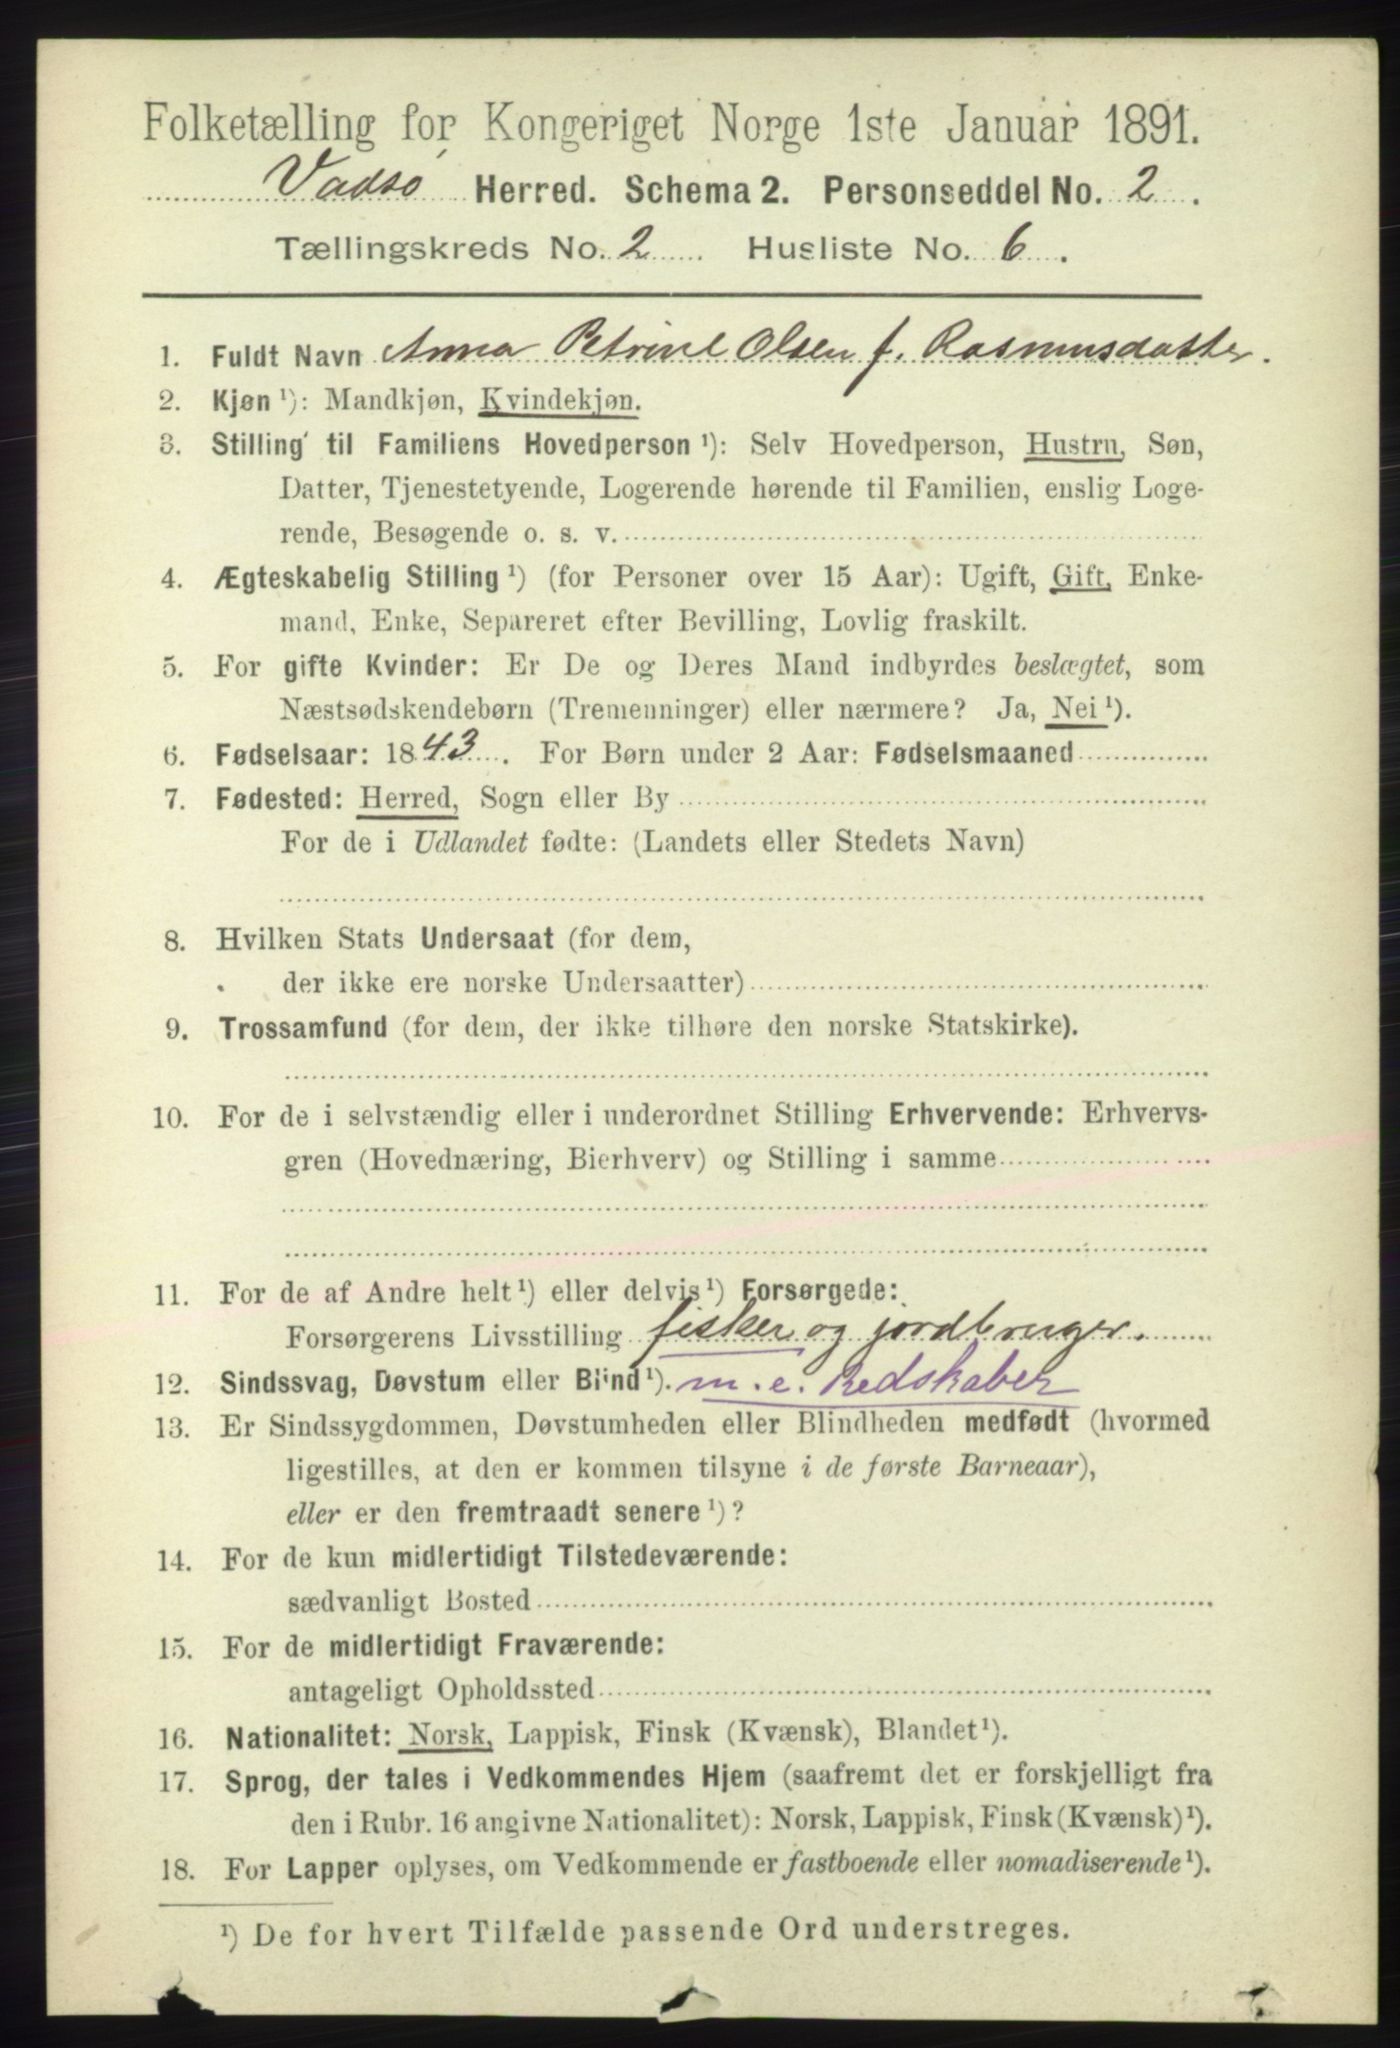 Folketælling for Kongeriget Norge 1ste Januar 1891.
Vadsø Herred. Schema 2. Personseddel No. 2.
Tællingskreds No. 2 Husliste No. 6.
1. Fuldt Navn Anna Petrine Olsen f. Rasmusdatter.
2. Kjøn ¹): Mandkjøn, Kvindekjøn.
3. Stilling til Familiens Hovedperson ¹): Selv Hovedperson, Hustru, Søn,
Datter, Tjenestetyende, Logerende hørende til Familien, enslig Loge-
rende, Besøgende o. s. v.
4. Ægteskabelig Stilling ¹) (for Personer over 15 Aar): Ugift, Gift, Enke-
mand, Enke, Separeret efter Bevilling, Lovlig fraskilt.
5. For gifte Kvinder: Er De og Deres Mand indbyrdes beslægtet, som
Næstsødskendebørn (Tremenninger) eller nærmere? Ja, Nei ¹).
6. Fødselsaar: 1843. For Børn under 2 Aar: Fødselsmaaned
7. Fødested: Herred, Sogn eller By
For de i Udlandet fødte: (Landets eller Stedets Navn)
8. Hvilken Stats Undersaat (for dem,
der ikke ere norske Undersaatter)
9. Trossamfund (for dem, der ikke tilhøre den norske Statskirke).
10. For de i selvstændig eller i underordnet Stilling Erhvervende: Erhvervs-
gren (Hovednæring, Bierhverv) og Stilling i samme
11. For de af Andre helt ¹) eller delvis ¹) Forsørgede:
Forsørgerens Livsstilling fisker og jordbruger.
12. Sindssvag, Døvstum eller Blind ¹). m. e. Redskaber
13. Er Sindssygdommen, Døvstumheden eller Blindheden medfødt (hvormed
ligestilles, at den er kommen tilsyne i de første Barneaar),
eller er den fremtraadt senere ¹)?
14. For de kun midlertidigt Tilstedeværende:
sædvanligt Bosted
15. For de midlertidigt Fraværende:
antageligt Opholdssted
16. Nationalitet: Norsk, Lappisk, Finsk (Kvænsk), Blandet ¹).
17. Sprog, der tales i Vedkommendes Hjem (saafremt det er forskjelligt fra
den i Rubr. 16 angivne Nationalitet): Norsk, Lappisk, Finsk (Kvænsk) ¹).
18. For Lapper oplyses, om Vedkommende er fastboende eller nomadiserende ¹).
¹) De for hvert Tilfælde passende Ord understreges.